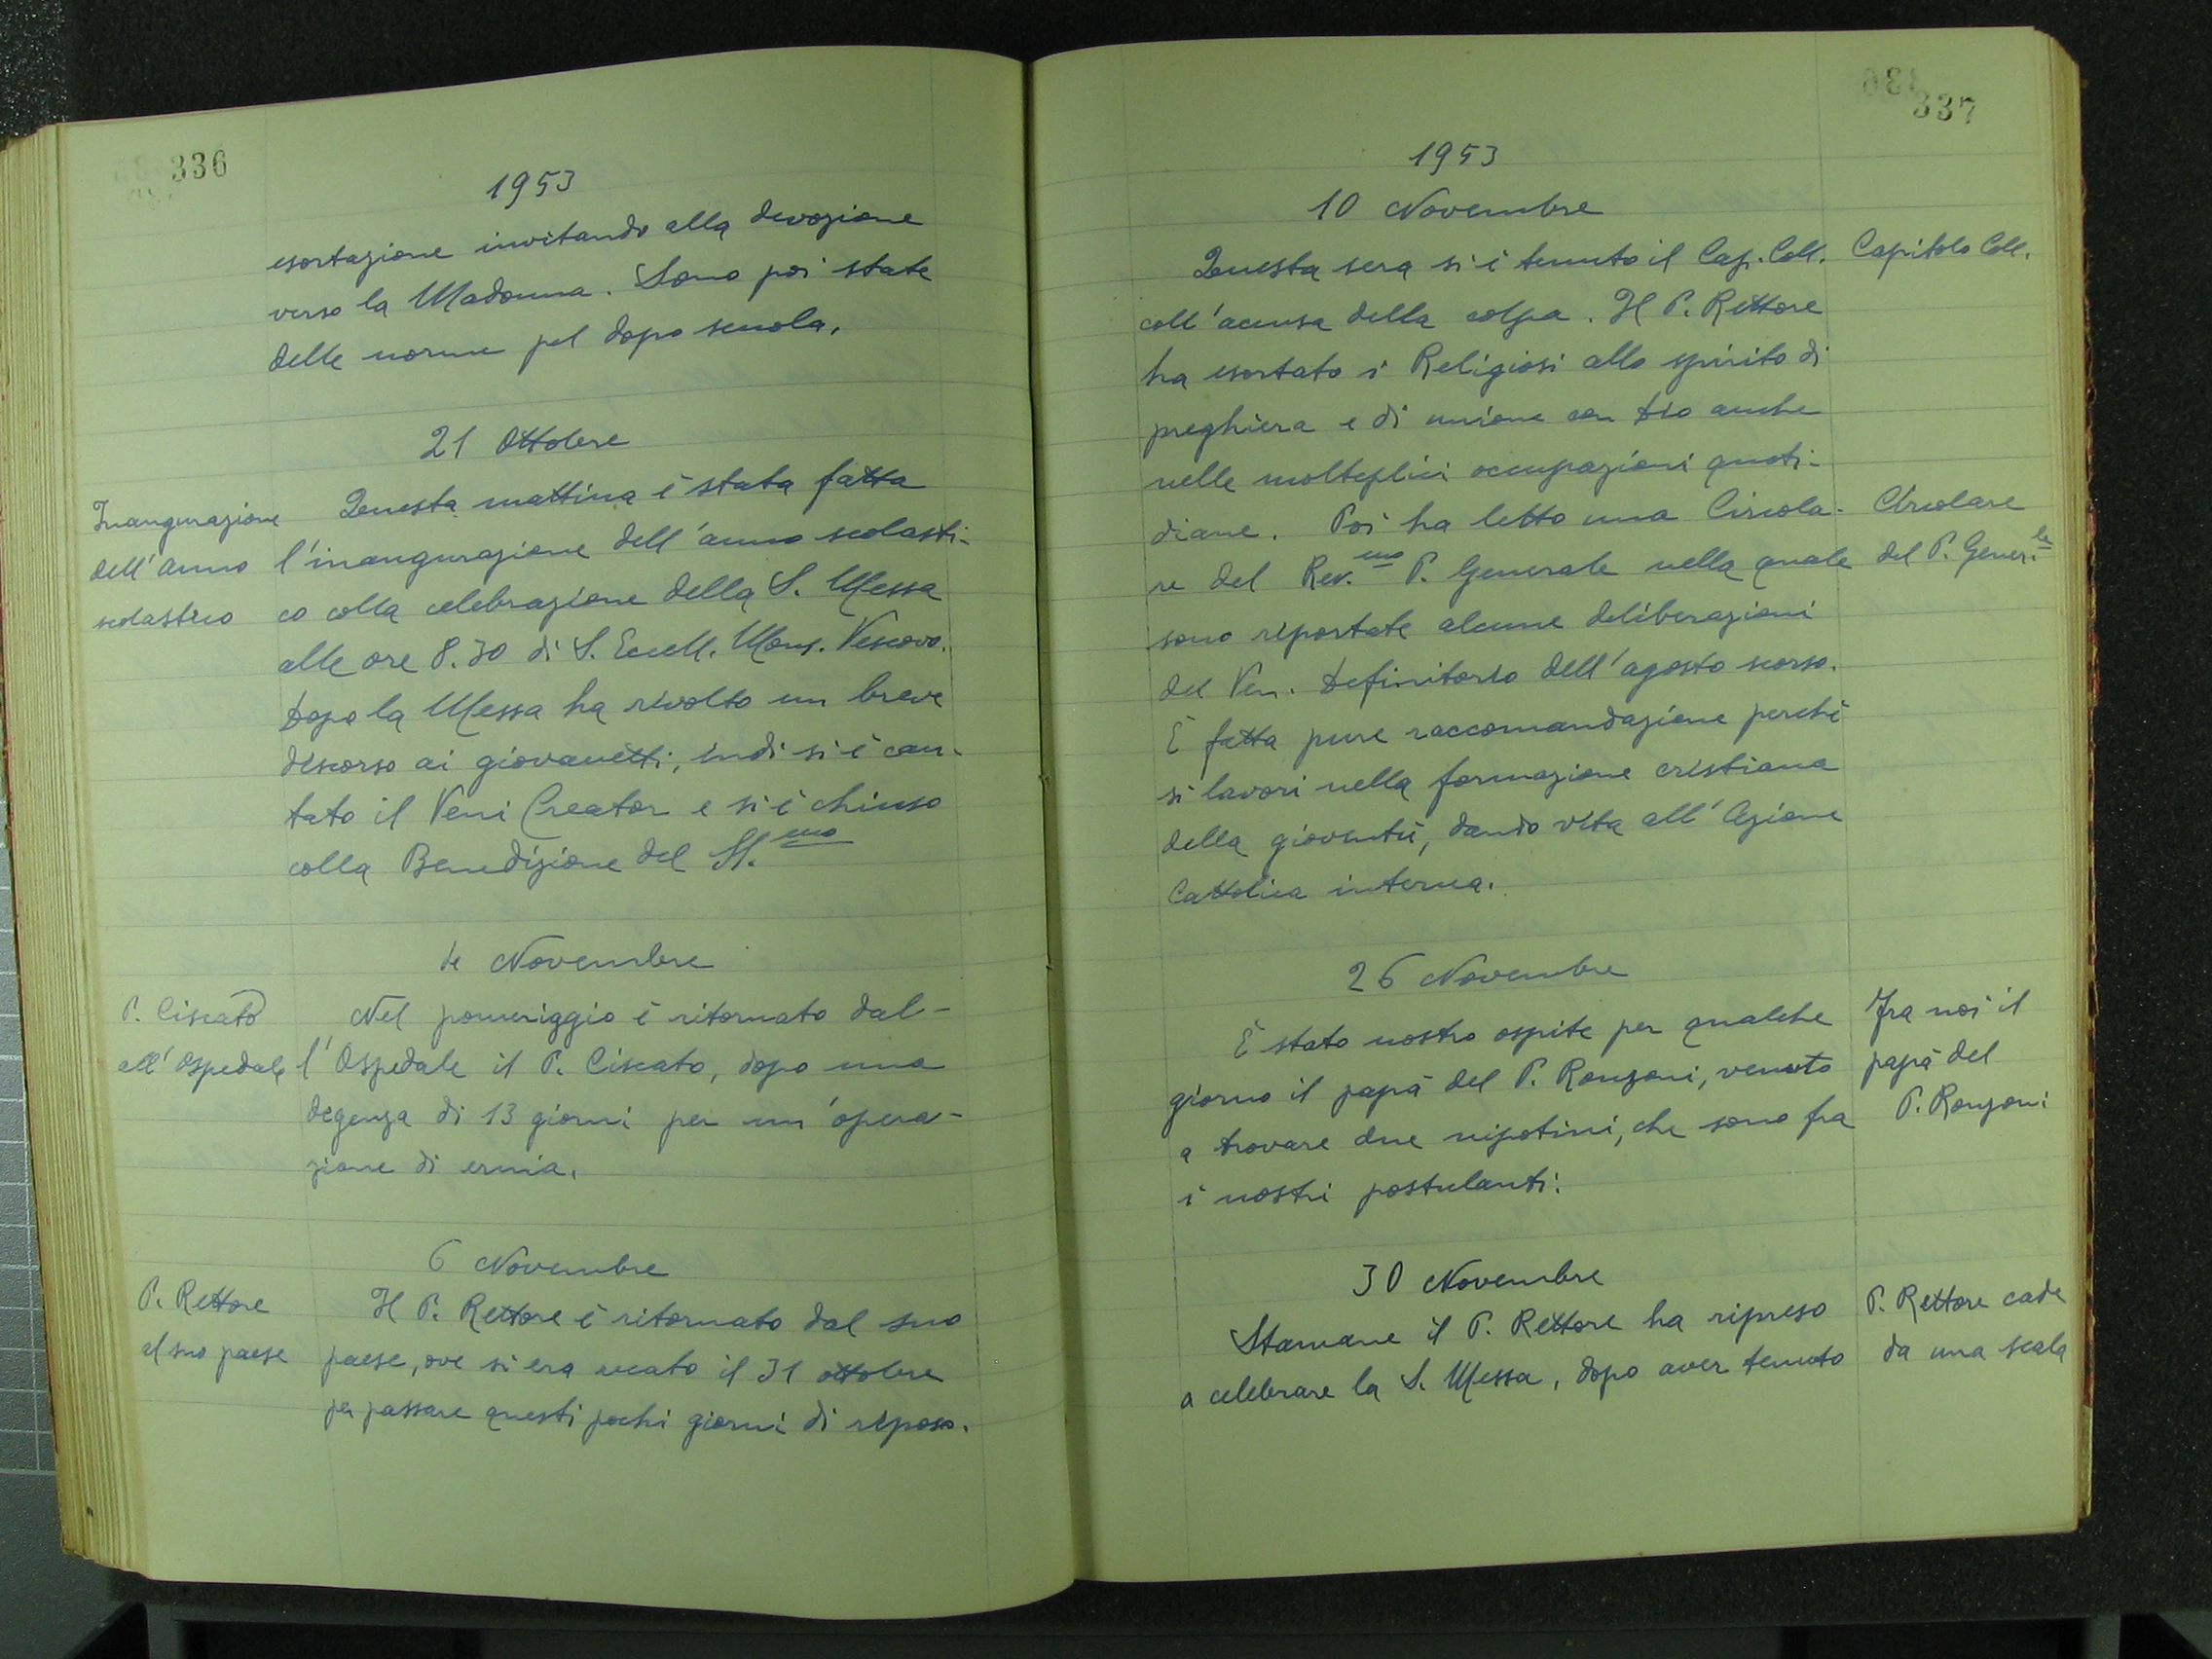 336
1953
esortazione invitando alla devozione
verso la Madonna. Sono poi state
delle norme pel dopo scuola.
21 Ottobre
Inaugurazione
dell'anno
scolastico
Questa mattina è stata fatta
l'inaugurazione dell'anno scolasti-
co colla celebrazione della S. Messa
alle ore 8.30 di S. Eccell. Mons. Vescovo.
Dopo la Messa ha rivolto un breve
discorso ai giovanetti, indi si è can-
tato il Veni Creator e si è chiuso
colla Benedizione del SS.mo
Novembre
P. Ciscato
all'Ospedale
Nel pomeriggio è ritornato dal-
l'Ospedale il P. Ciscato, dopo una
degenza di 13 giorni per un'opera-
zione di ernia.
6 Novembre
P. Rettore
al suo paese
Il P. Rettore è ritornato dal suo
paese, ove si era recato il 31 ottobre
per passare questi pochi giorni di riposo.
337
1953
10 Novembre
Questa sera si è tenuto il Cap. Coll.
Capitolo Coll.
coll'accusa della colpa. Il P. Rettore
ha esortato i Religiosi allo spirito di
preghiera e di unione con Dio anche
nelle molteplici occupazioni quoti-
diane. Poi ha letto una Circola-
re del Rev.mo P. Generale nella quale
Circolare
del P. Gener.le
sono riportate alcune deliberazioni
del Ven. Definitorio dell'agosto scorso.
È fatta pure raccomandazione perchè
si lavori nella formazione cristiana
della gioventù, dando vita all'Azione
Cattolica interna.
26 Novembre
È stato nostro ospite per qualche
giorno il papà del P. Ronzoni, venuto
a trovare due nipotini, che sono fra
i nostri postulanti.
Fra noi il
papà del
P. Ronzoni
30 Novembre
Stamane il P. Rettore ha ripreso
a celebrare la S. Messa, dopo aver tenuto
P. Rettore cade
da una scala